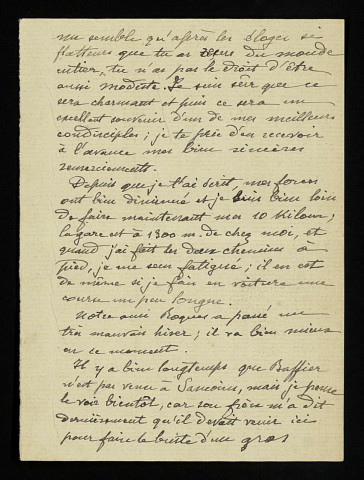 me semble qu'après les éloges si
flatteurs que tu as reçus du monde
entier, tu n'as pas le droit d'être
aussi modeste. Je suis sûre que ce
sera charmant et puis ce sera un
excellent souvenir d'un de mes meilleurs
condisciples ; je te prie d'en recevoir
à l'avance mes bien sincères
remerciements.
Depuis que je t'ai écrit, mes forces
ont bien diminué et je suis bien loin
de faire maintenant mes 10 kilom ;
la gare est à 1300 m. de chez moi, et
quand j'ai fait les deux chemins à
pied, je me sens fatigué ; il en est
de même si je fais en voiture une
course un peu longue.
Notre ami Roques a passé un
très mauvais hiver ; il va bien mieux
en ce moment.
Il y a bien longtemps que Baffier
n'est pas venu à Sancoins, mais je pense
le voir bientôt, car son frère m'a dit
dernièrement qu'il devait venir ici
pour faire le buste d'un gros